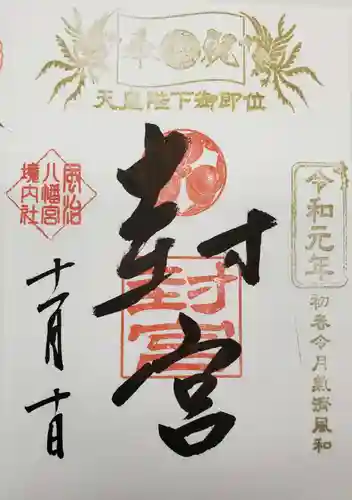 奉祝
天皇陛下御即位
令和元年
初春令月氣淑風和
封宮
封宮
風治
八幡宮
境内社
十一月十日